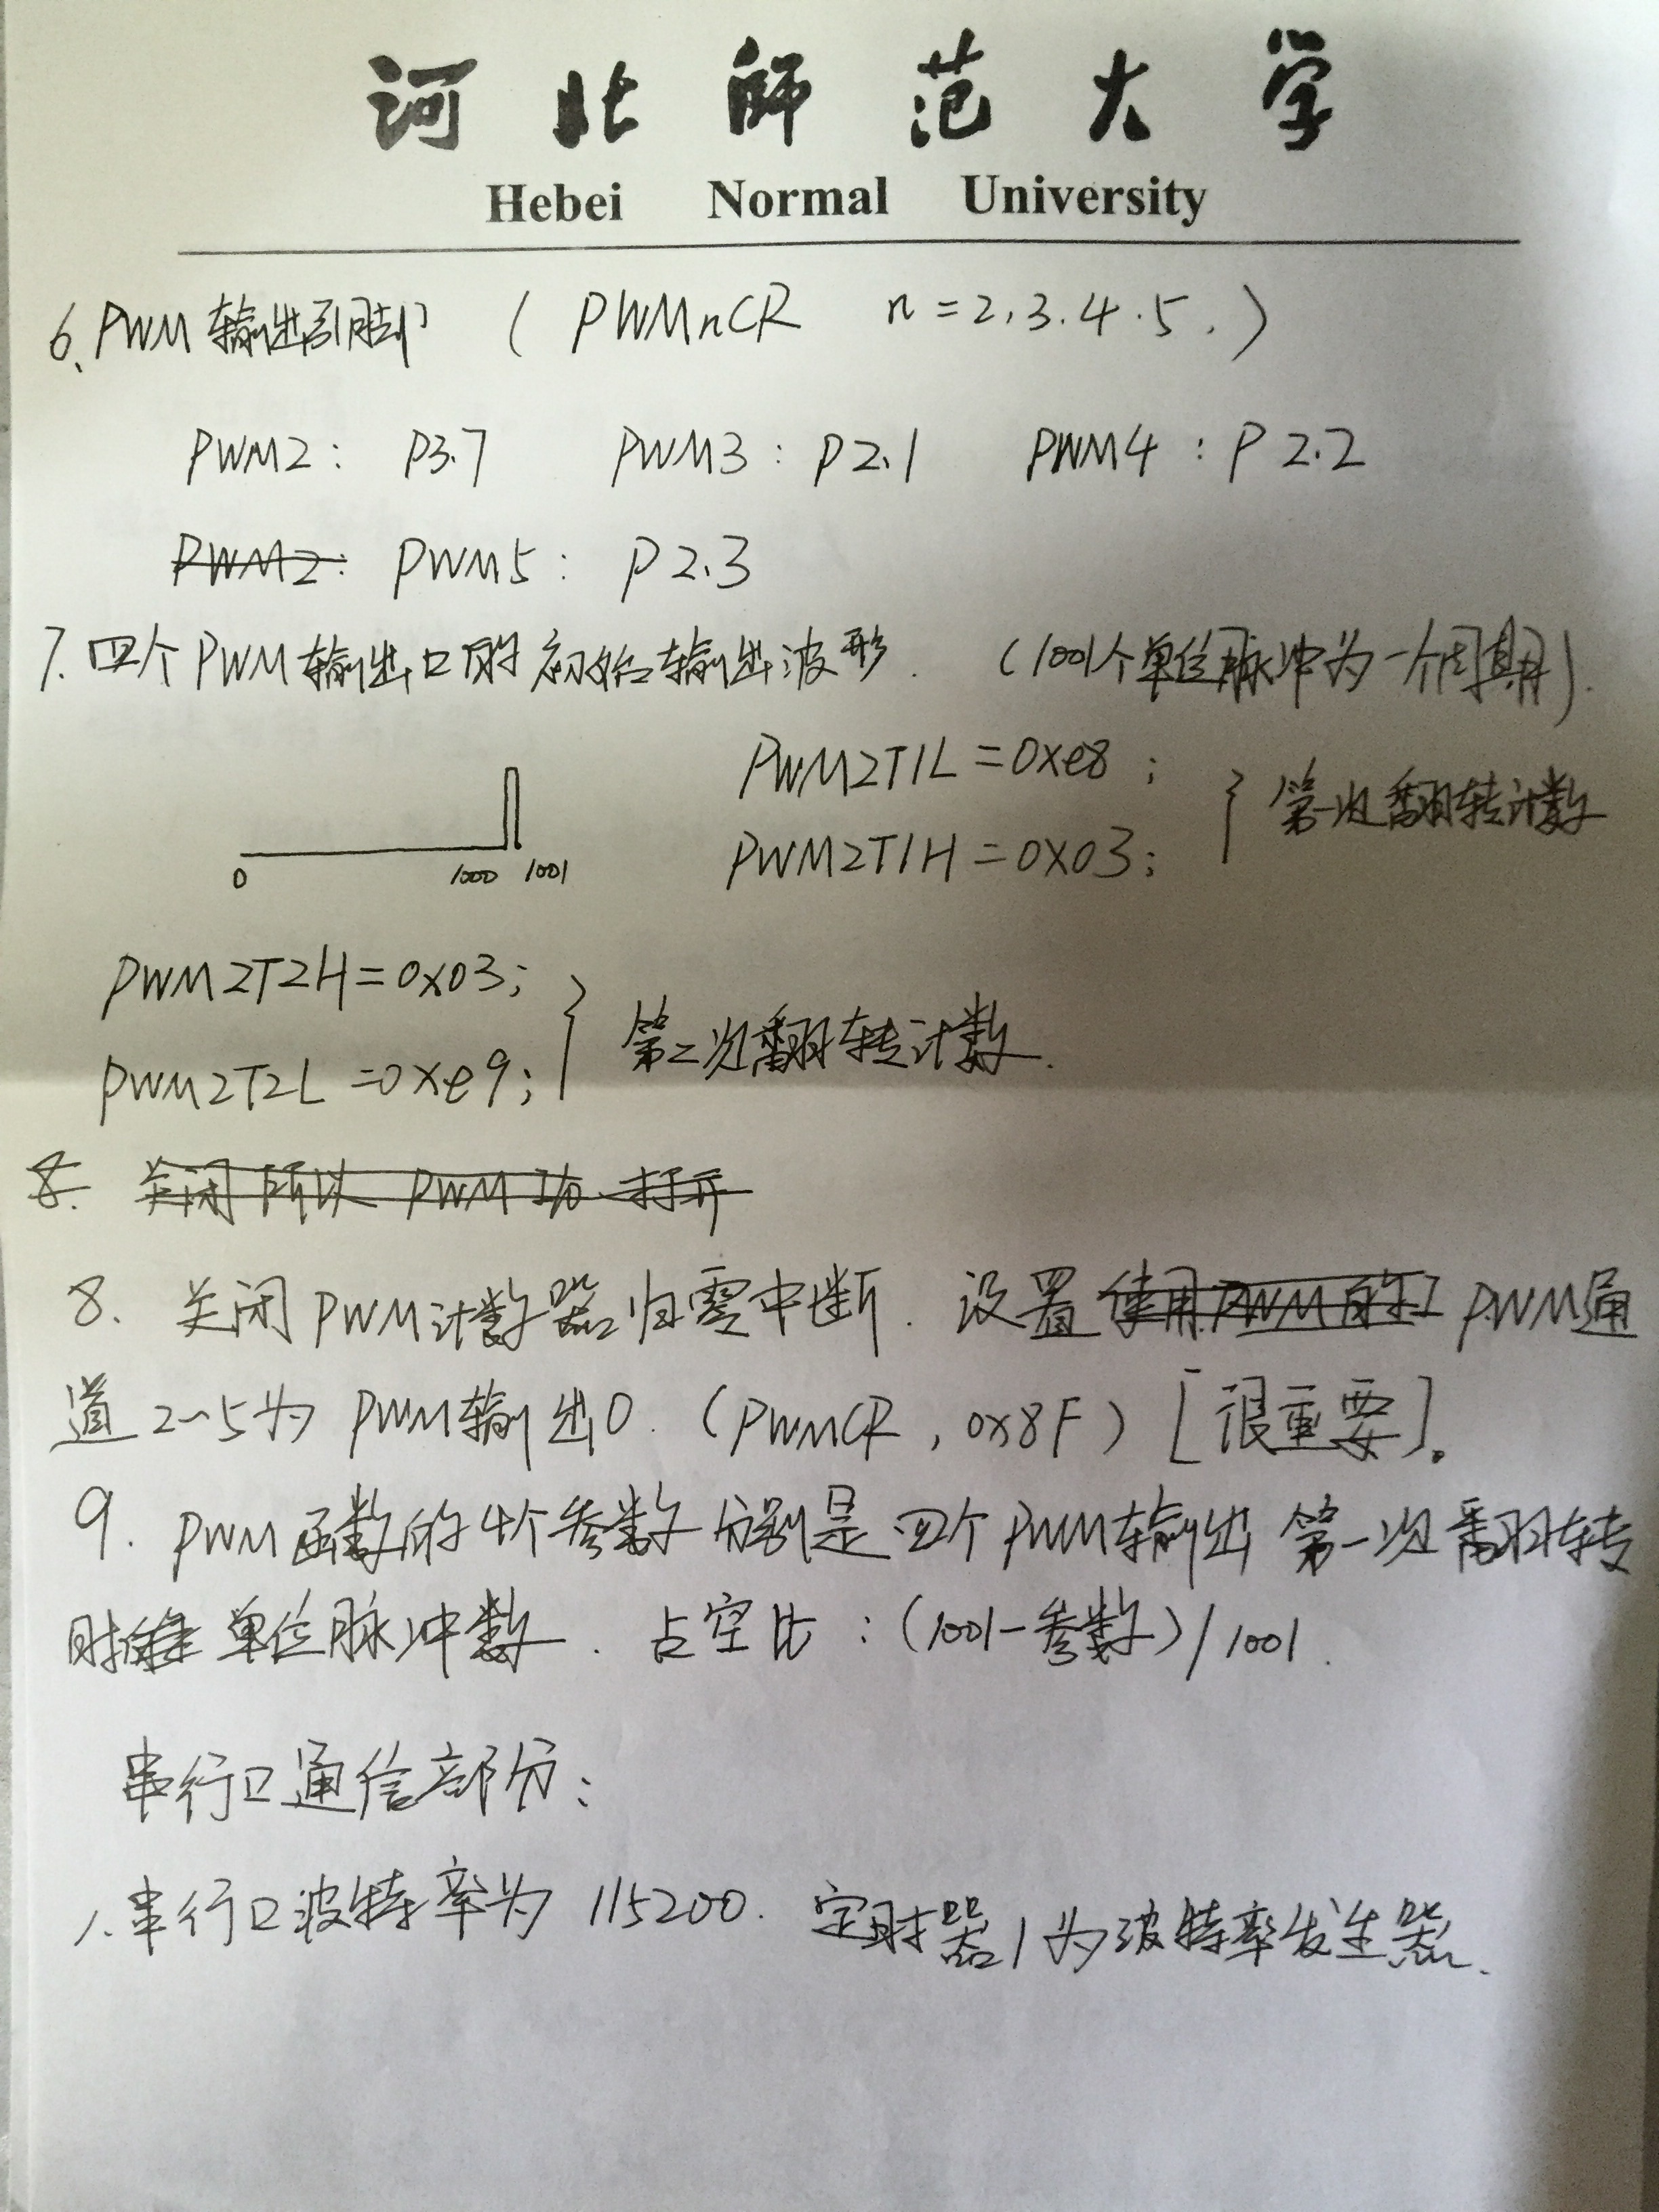 河北师范大学
Hebei Normal University
6、PWM输出引脚 ( PWMnCR n=2,3.4.5. )
PWM2: P3.7 PWM3: P2.1 PWM4: P2.2
PWM2: PWM5: P2.3
7. 四个PWM输出口的初始输出波形. (1001个单位脉冲为一个周期).
PWM2T1L=0xe8;
PWM2T1H=0x03;
} 第一次翻转计数
0 1000 1001
PWM2T2H=0x03;
PWM2T2L=0xe9;
} 第二次翻转计数.
8. 关闭所以PWM I/o 打开
8. 关闭PWM计数器归零中断. 设置使用PWM的 PWM通
道2~5为PWM输出0. (PWMCR, 0x8F) [很重要]。
9. PWM函数的4个参数分别是四个PWM输出第一次翻转
时 单位脉冲数. 占空比:(1001-参数)/1001.
串行口通信部分:
1.串行口波特率为115200. 定时器1为波特率发生器.